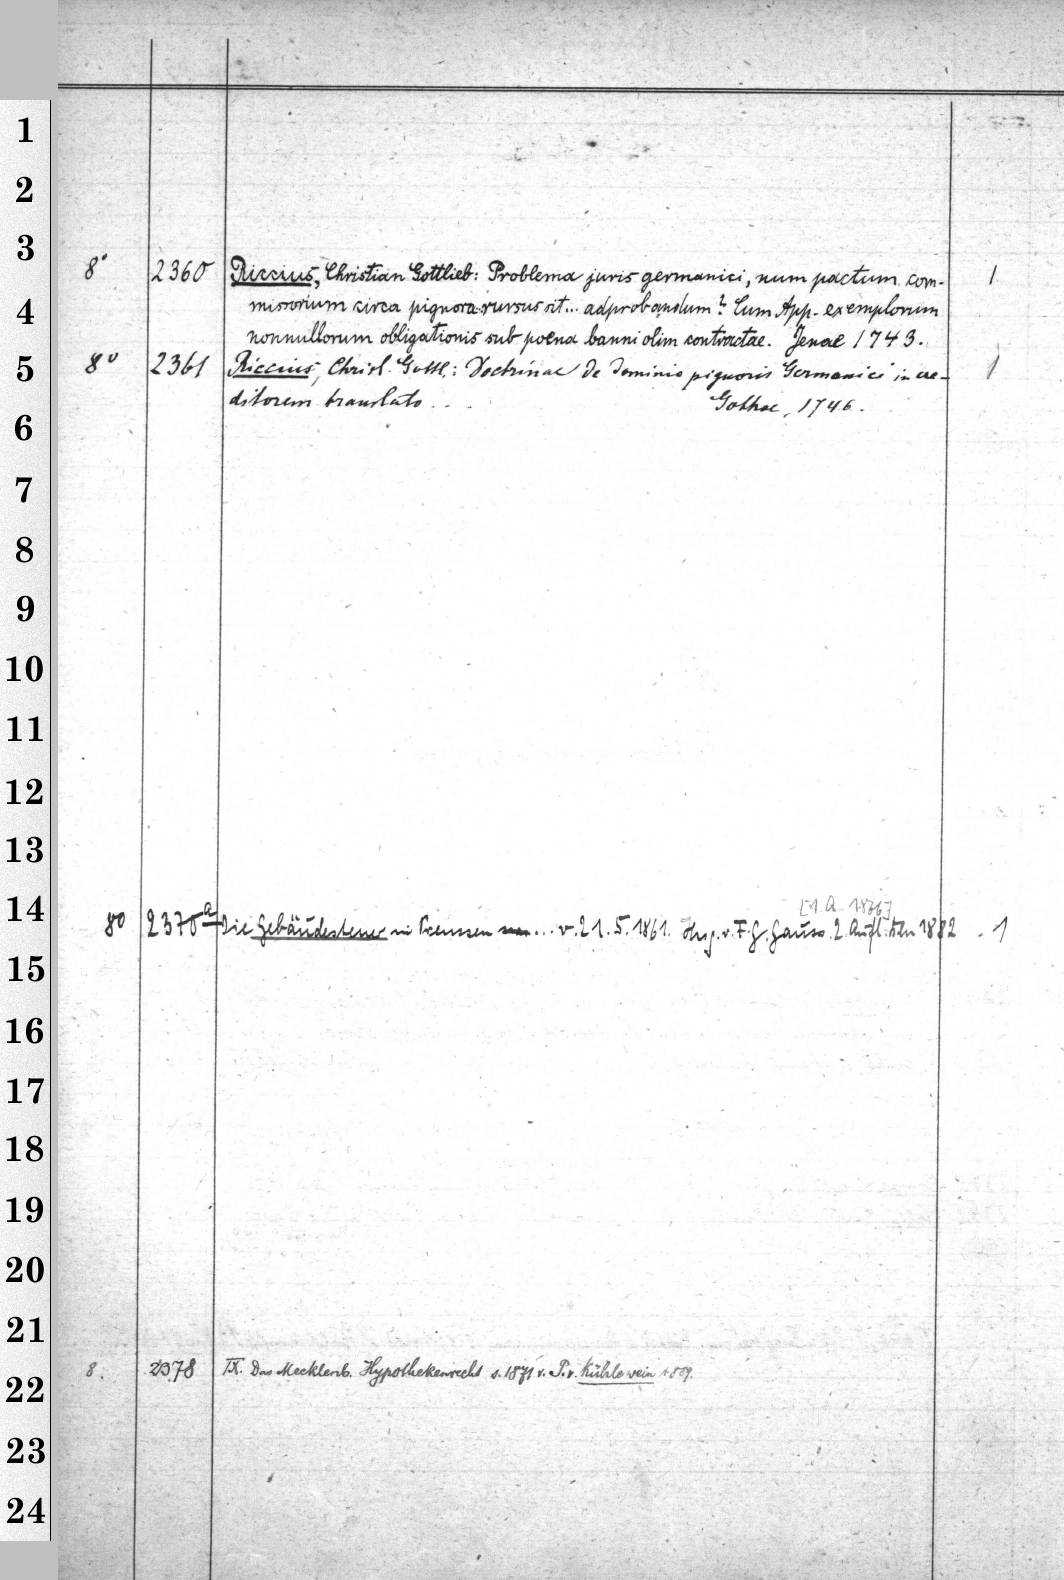 1
2
3
8° 2360 Riccius, Christian Gottlieb: Problema juris germanici, num pactum com- 1
4
missorium circa pignora rursus sit... adprobandum? Cum App. exemplorum
nonnullorum obligationis sub poena banni olim contractae. Jenae 1743.
5
8° 2361 Riccius, Christ. Gottl.: Doctrinae de dominio pignoris Germanici in cre- 1
ditorem translato . . . Gothae, 1746.
6
7
8
9
10
11
12
13
14
[1. A. 1866]
80 2370a Die Gebäudesteuer in Preussen ... v. 21.5.1861. Hrg. v. F. G. Gauss. 2. Aufl. Bln 1882 . 1
15
16
17
18
19
20
21
8. 2378 IX. Das Mecklenb. Hypothekenrecht s. 1871 v. P. v. Kühlewein
22
23
24